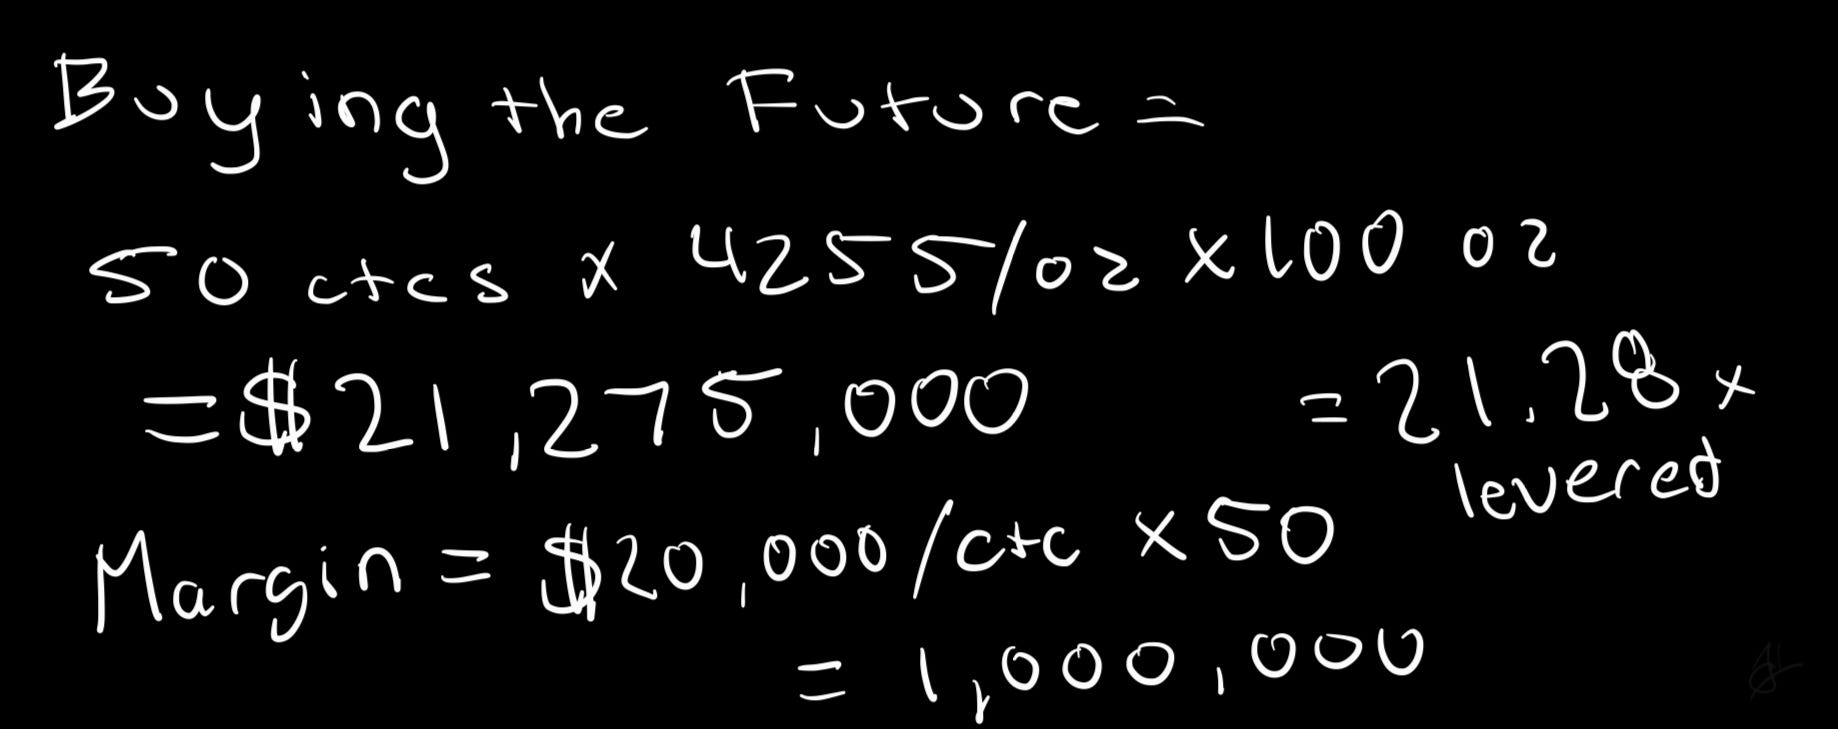 Buying the Future =
50 ctcs x 4255/oz x 100 oz
= $21,275,000 = 21.28x
levered
Margin = $20,000/ctc x 50
= 1,000,000